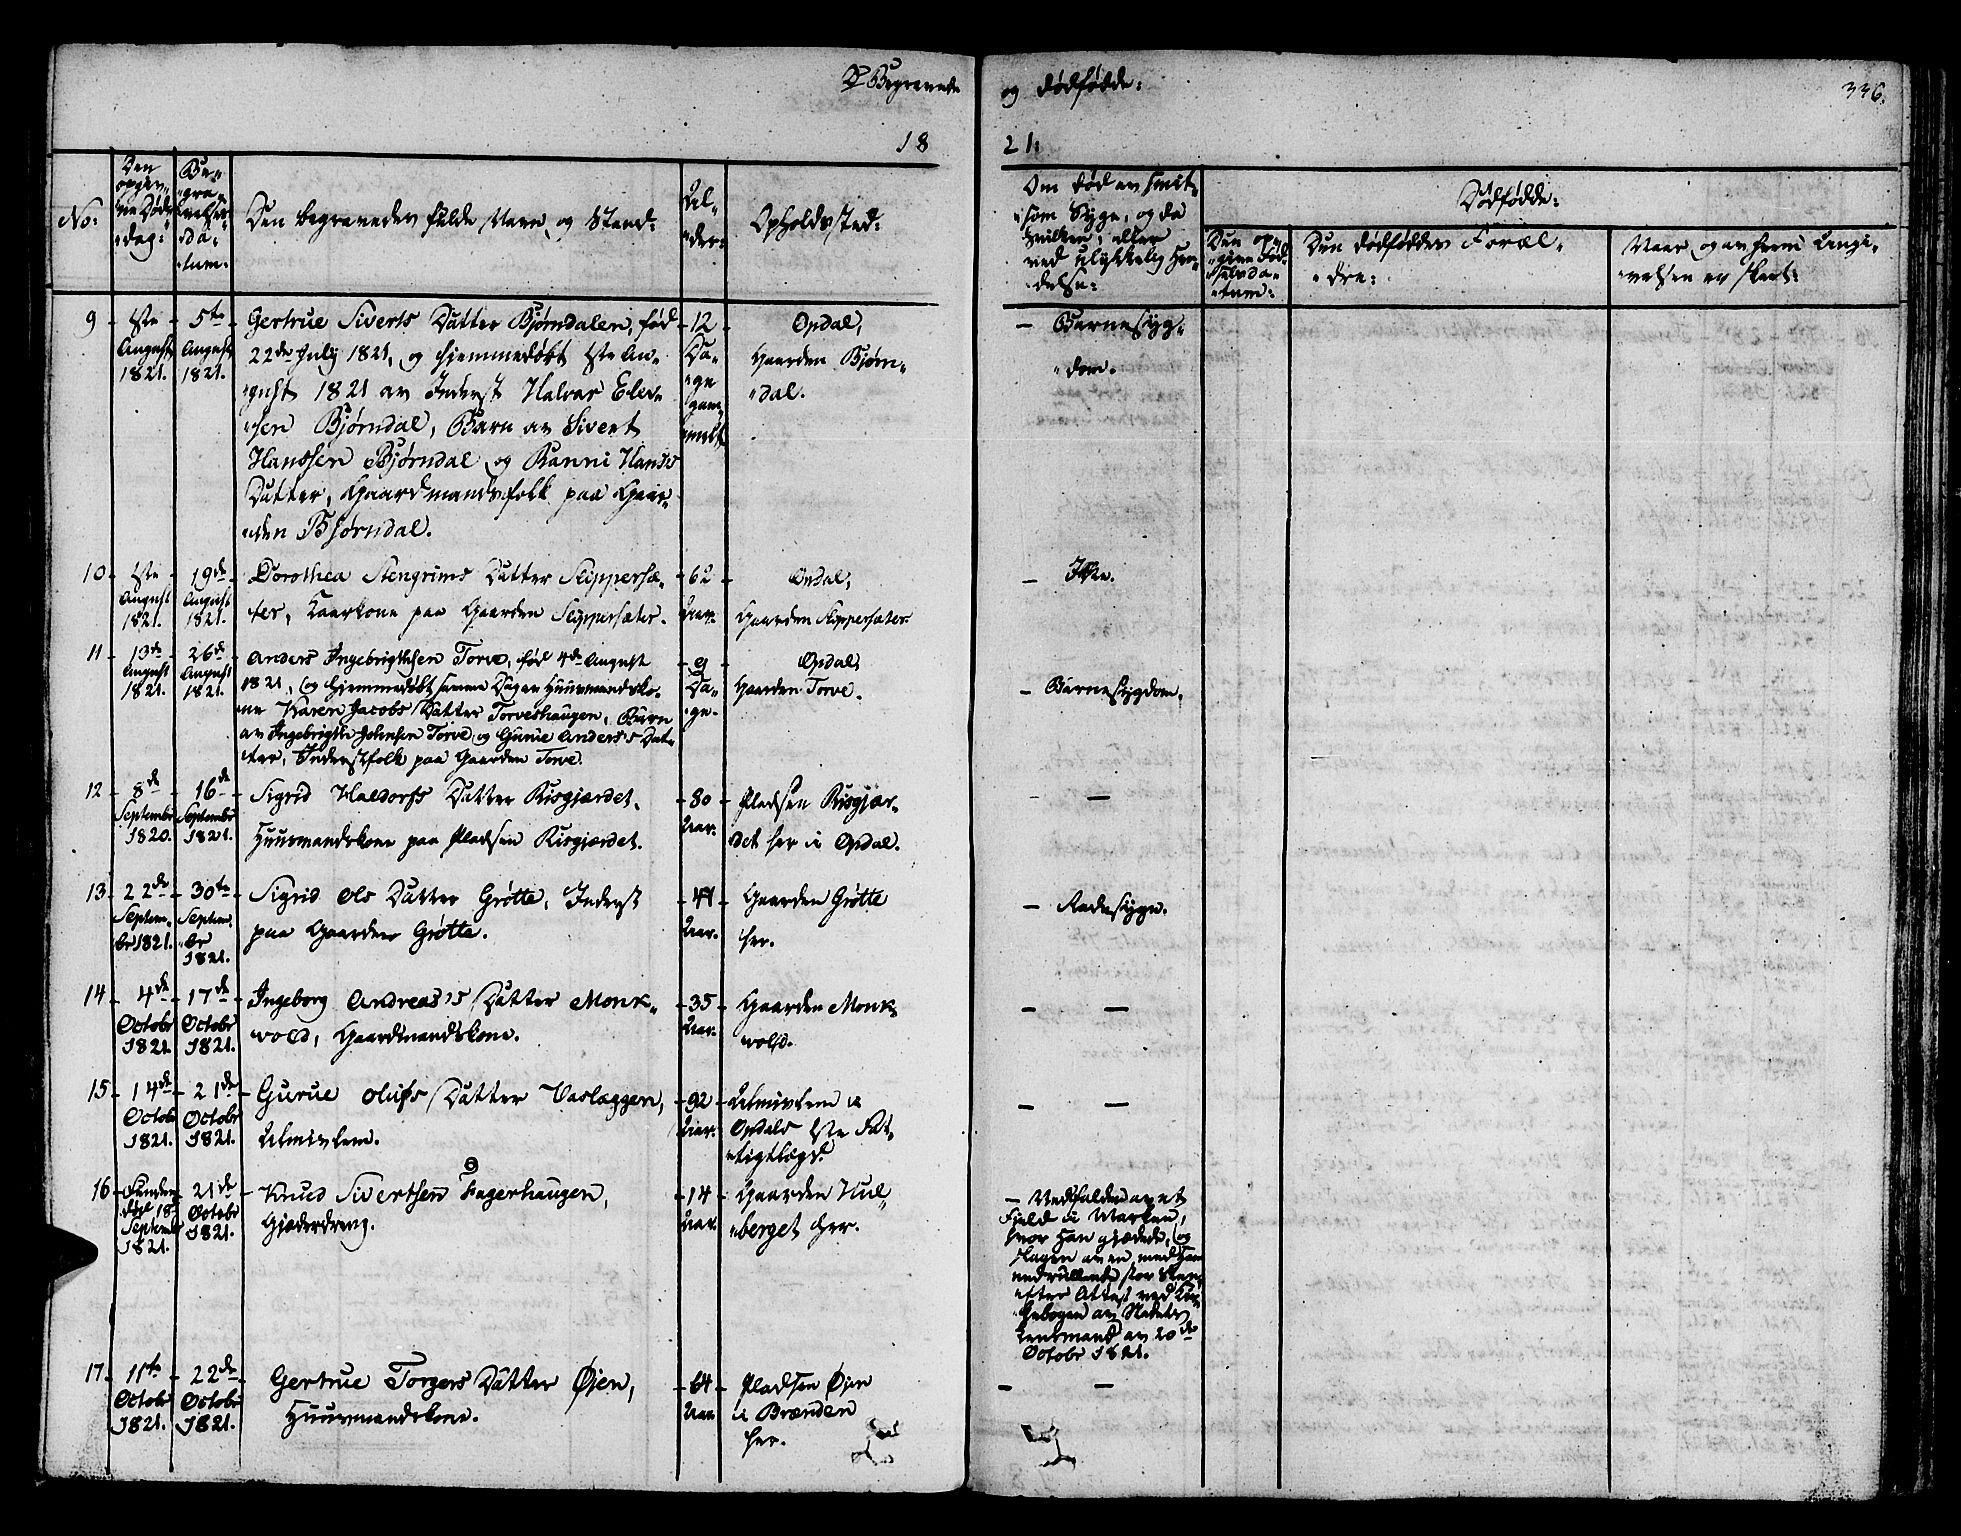 Begravede
og Dødfødde:
336.
18
21.
No:
Den
opgiv-
ne Døds
dag:
Be-
gra-
velses-
da-
tum:
Den begravedes fulde Navn, og Stand:
Al-
der:
Opholdssted:
Om død av smit-
som Syge, og da
hvilken; eller
ved ulykkelig Hæn-
delse:
Dødfødde:
Den op-
givne Fød-
selsda-
tum:
Den dødføddes Foræl-
dre:
Naar, og av hvem Angi-
velsen er skeet:
9
1ste
August
1821.
5te
August
1821.
Gertrue Siverts Datter Bjørndalen, fød
22de July 1821, og hjemmedøbt 1ste Au-
gust 1821 av Inderst Halvor Elev-
sen Bjørndal, Barn av Sivert
Hansen Bjørndal og Ranni Hans's
Datter, Gaardmandsfolk paa Gaar-
den Bjørndal.
12
Da-
ge
gam-
melt
Opdal,
Gaarden Bjørn-
dal.
Barnesyg-
dom.
10
1ste
August
1821.
19de
August
1821.
Dorothea Stengrims Datter Slippersæ-
ter, Kaarkone paa Gaarden Slippersæter.
62
Aar.
Opdal,
Gaarden Slippersæter
Ikke.
11
13de
August
1821.
26de
August
1821.
Anders Ingebrigtsen Torve, fød 4de August
1821, og hjemmedøbt samme Dag av Huusmandsko-
ne Karen Jacobs Datter Torveshaugen, Barn
av Ingebrigt Johnsen Torve og Gurue Anders's Dat-
ter, Inderstfolk paa Gaarden Torve.
9
Da-
ge.
Opdal,
Gaarden Torve.
Barnesygdom.
12
8de
Septembr
1820.
16de
Septembr
1821.
Sigrid Haldors Datter Risgjærdet,
Huusmandskone paa Pladsen Risgjærdet.
80
Aar.
Pladsen Risgjær-
det her i Opdal.
— —
13
22de
Septem-
br 1821.
30te
Septem-
br
1821.
Sigrid Ols Datter Grøtte, Inderst
paa Gaarden Grøtte.
44
Aar.
Gaarden Grøtte
her.
Radesyge.
14
4de
Octobr
1821.
17de
Octobr
1821.
Ingeborg Andreas's Datter Monk-
vold, Gaardmandskone.
35
Aar.
Gaarden Monk
vold.
— —
15
14de
Octobr
1821.
21de
Octobr
1821.
Gurue Olufs Datter Vaslaggen,
Almislem.
92
Aar.
Almislem i
Opdals 1ste Fat-
tigtlægd.
— —
16
Funden
død 18
Septembr
1821.
21de
Octobr
1821.
Knud Sivertsen Fagerhaugen,
Gjæderdreng.
14
Aar.
Gaarden Hul-
berget her.
Nedfalden av et
Fjeld i Marken,
hvor han gjædede, og
slagen av en, med ham
nedrullende stor Sten,
efter Attest ved Kir-
kebogen av Stedets
Lensmand av 20de
Octobr 1821.
17.
11te
Octobr
1821.
22de
Octobr
1821.
Gertrue Torgers Datter Øien,
Huusmandskone.
64
Aar
Pladsen Øien
i Brænden
her.
— —